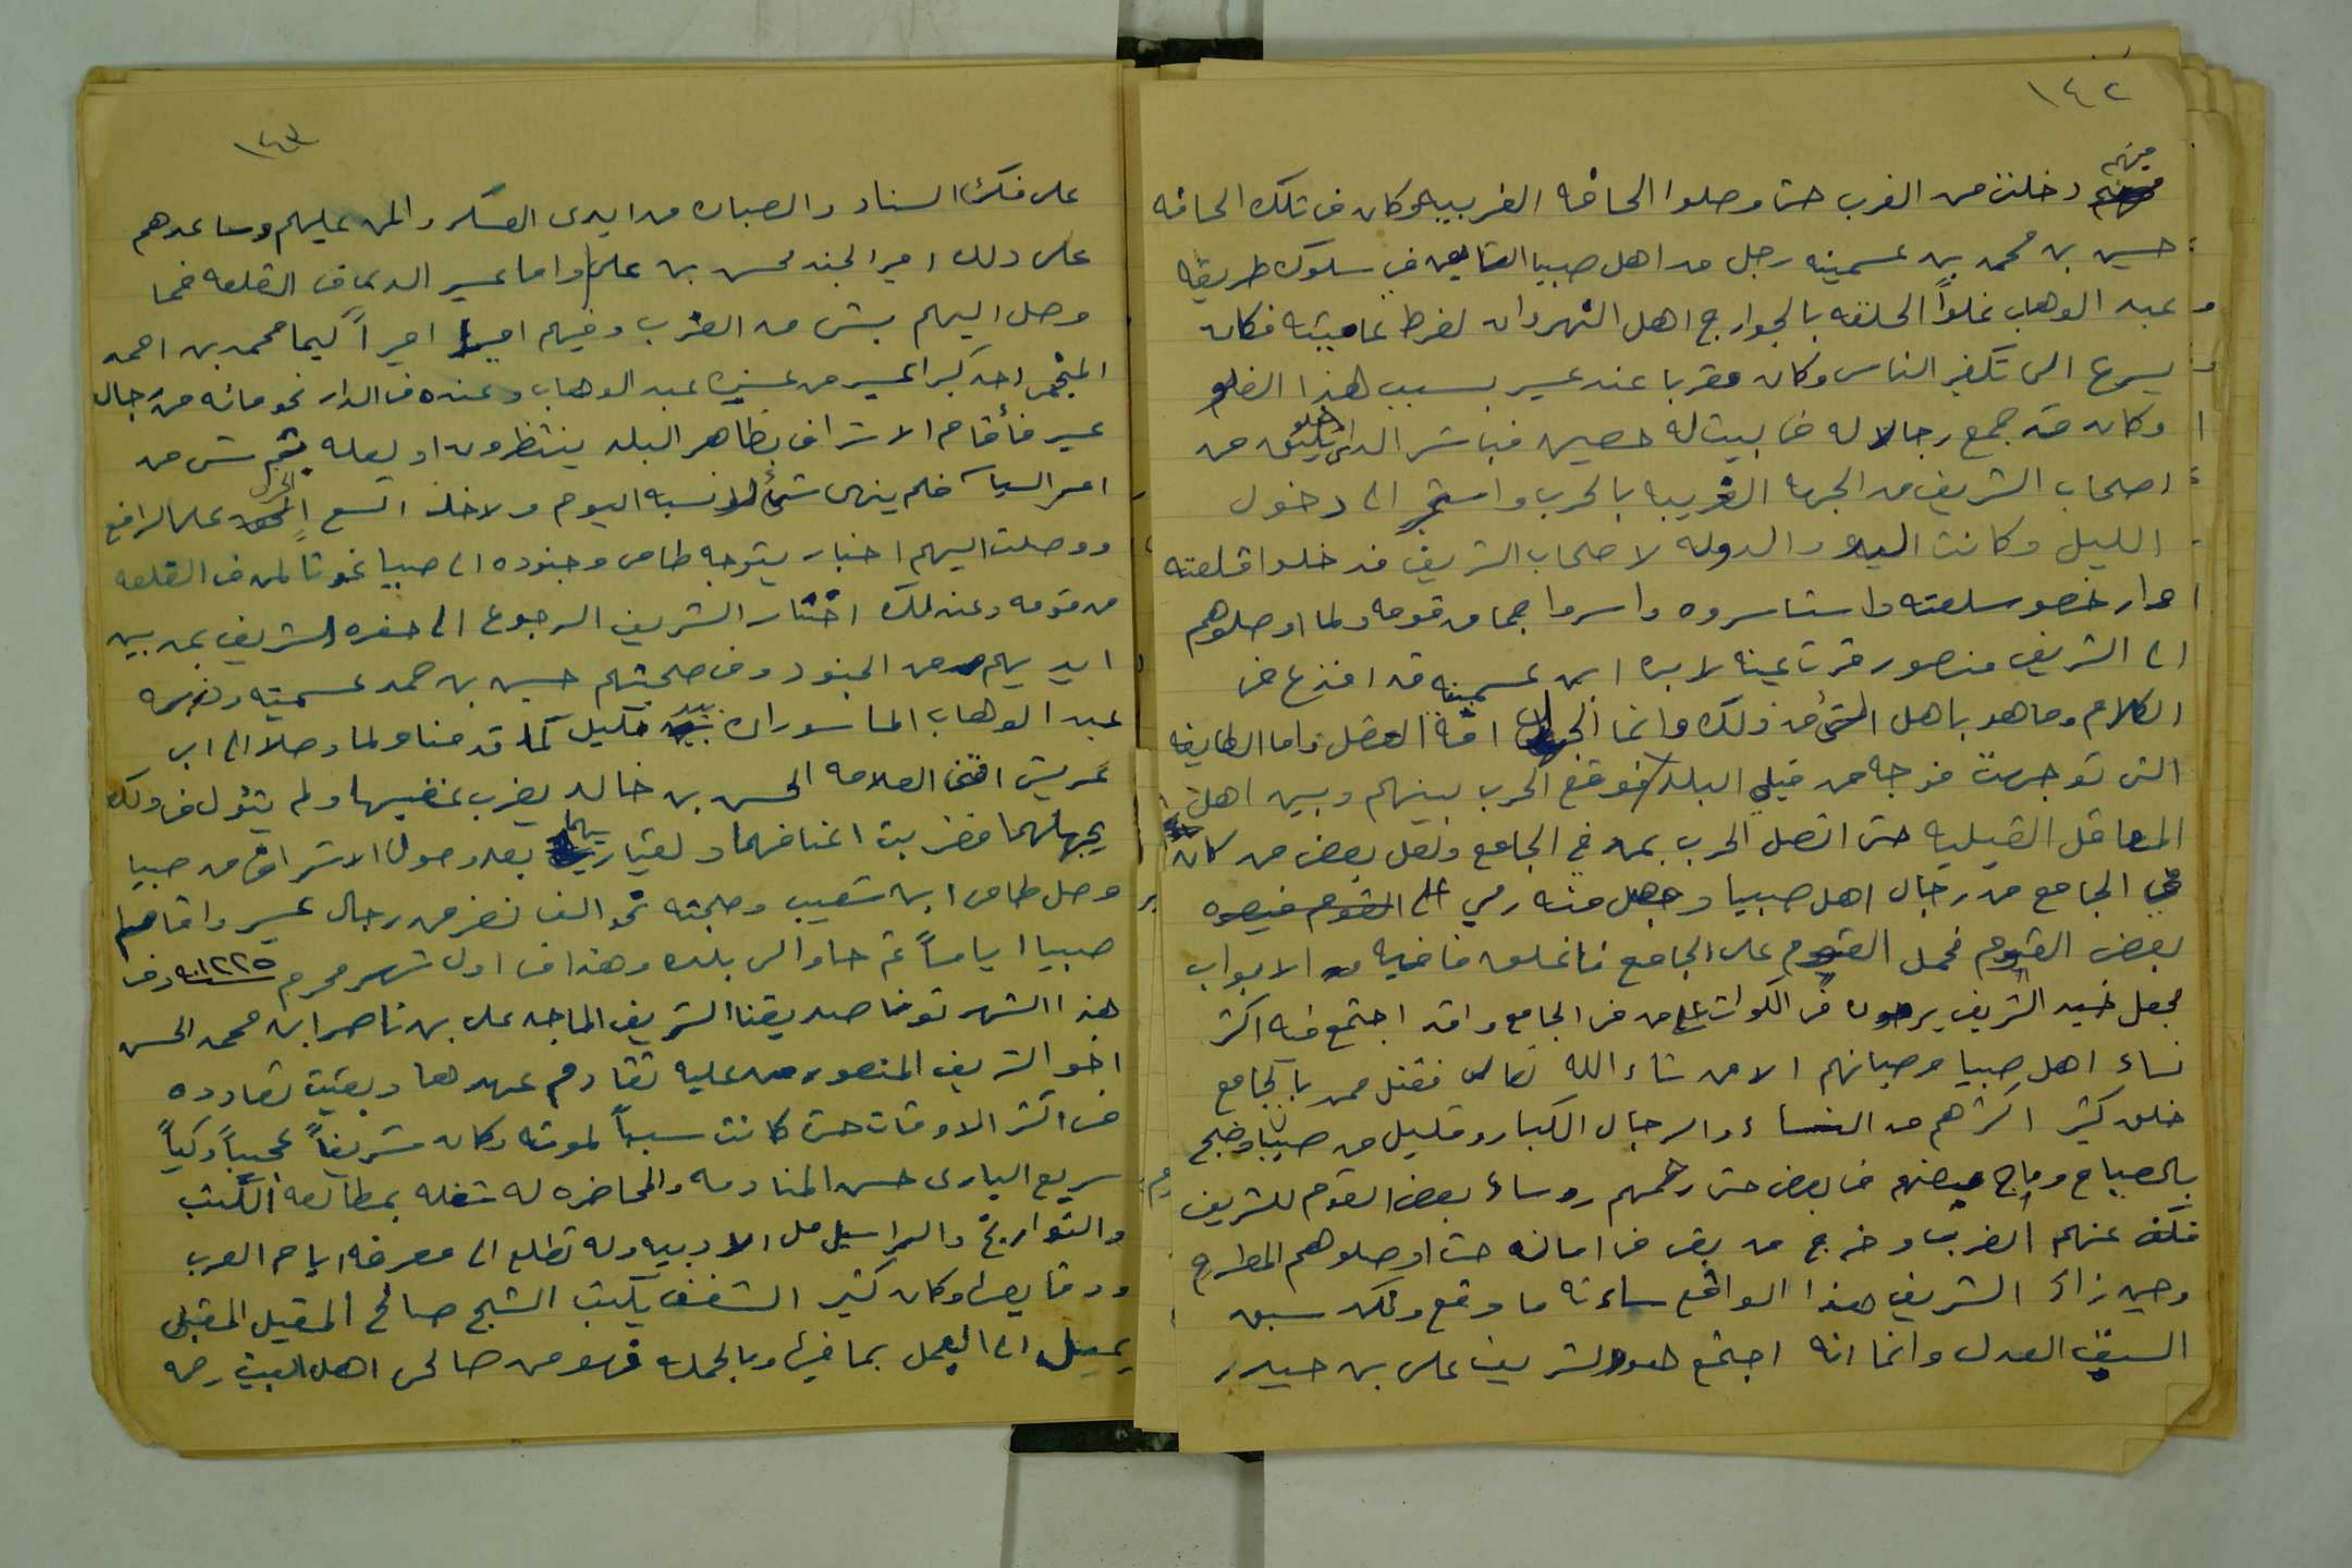 ١٤٢
منهم
دخلت من الغرب حتى وصلوا الحافه الغربيه وكان في تلك الحافه
حسين بن محمد بن عسمينه رجل من اهل صبيا في سلوك طريقه
عبد الوهاب غلواً الحقته بالخوارج اهل النهروان لفرط غاميته فكان
يسرع الى تكفير الناس وكان مقربا عند عسير بسبب هذا الغلو
وكان قد جمع رجالا له في بيت له حصين فباشر الداخلين من
اصحاب الشريف من الجهه الغربيه بالحرب واستمر الى دخول
الليل وكانت اليد والدوله لاصحاب الشريف فدخلوا قلعته
واستاسروه واسروا جما من قومه ولما اوصلوهم
الى الشريف منصور قرت عينه لاسره ابن عسمينه قد اقذع في
الكلام وما هو باهل الشئ من ذلك وانما الجهل افة العقل واما الطايفه
التي توجهت فوجه من قبلي البلد فوقع الحرب بينهم وبين اهل
المعاقل القبليه حتى اتصل الحرب بمن في الجامع ولعل بعض من كان
في الجامع من رجال اهل صبيا وحصل منه رمي الى القوم
بعض القوم فحمل القوم على الجامع فاغلق ما فيه من الابواب
فجعل جند الشريف يرمون في الكوات على من في الجامع وقد اجتمع فيه اكثر
نساء اهل صبيا وصبيانهم الا من شاء الله تعالى فقتل ممن بالجامع
خلق كثير اكثرهم من النساء والرجال الكبار وقليل من صبيا وضج
بالصياح وماج بعضهم في بعض حتى رحمهم روساء بعض القوم للشريف
فكف عنهم الضرب وخرج من بقي في امانه حتى اوصلوهم المطرح
وحين راى الشريف هذا الواقع ساءته ما وقع ولكن سبق
السيف العدل وانما انه اجتمع هو والشريف علي بن حيدر
١٤٣
على فكاك النساء والصبيان من ايدي العسكر والمن عليهم وساعدهم
على ذلك امير الجند محسن بن علي واما عسير الذي في القلعه فما
وصل اليهم بشى من الضرب وفيهم اميرا كيما محمد بن احمد
المتحمي احد كبرا عسير من عشيرة عبد الوهاب وعنده في الدار نحو مائه من رجال
عسير فأقام الاشراف بظاهر البلد ينتظرون لعله يتم شى من
امر السياسه فلم ينهى شئ لانسبه اليوم ولا خلف اتسع الخرق على الراقع
ووصلت اليهم اخبار بتوجه طامي وجنوده الى صبيا غوثا لمن في القلعه
من قومه وعند ذلك اختار الشريف الرجوع الى حضره الشريف بمن بين
ايديهم من الجنود وفي صحبتهم حسين بن محمد عسمينه
عبد الوهاب الماسوران بيد خليل كما قدمنا ولما وصلا الى ابي
عريش افتى العلامه الحسن بن خالد بضرب عنقيهما ولم يتول في ذلك
بجهلهما فضربت اعناقهما بعد وصول الاشراف من صبيا
وصل طامي ابن شعيب وصحبته نحو الف نفر من رجال عسير واقام
صبيا اياماً ثم عاد الى بلده وهذا في اول شهر محرم سنه ١٢٢٥ وفي
هذا الشهر توفى صديقنا الشريف الماجد علي بن ناصر ابن محمد الحسن
اخو الشريف المنصور عليه تقادم عهدها وبقيت تعاوده
في اكثر الاوقات حتى كانت سبباً لموته وكان شريفاً نجيباً ذكياً
سريع البادى حسن المنادمه والمحاضره له شغله بمطالعة الكتب
والتواريخ والمراسيل الادبيه وله تطلع الى معرفه ايام العرب
ووقايعها وكان كثير الشغف بكتب الشيخ صالح المقبل المقبلي
يميل الى العمل بما فيها وبالجمله فهو من صالحي اهل البيت رحمه